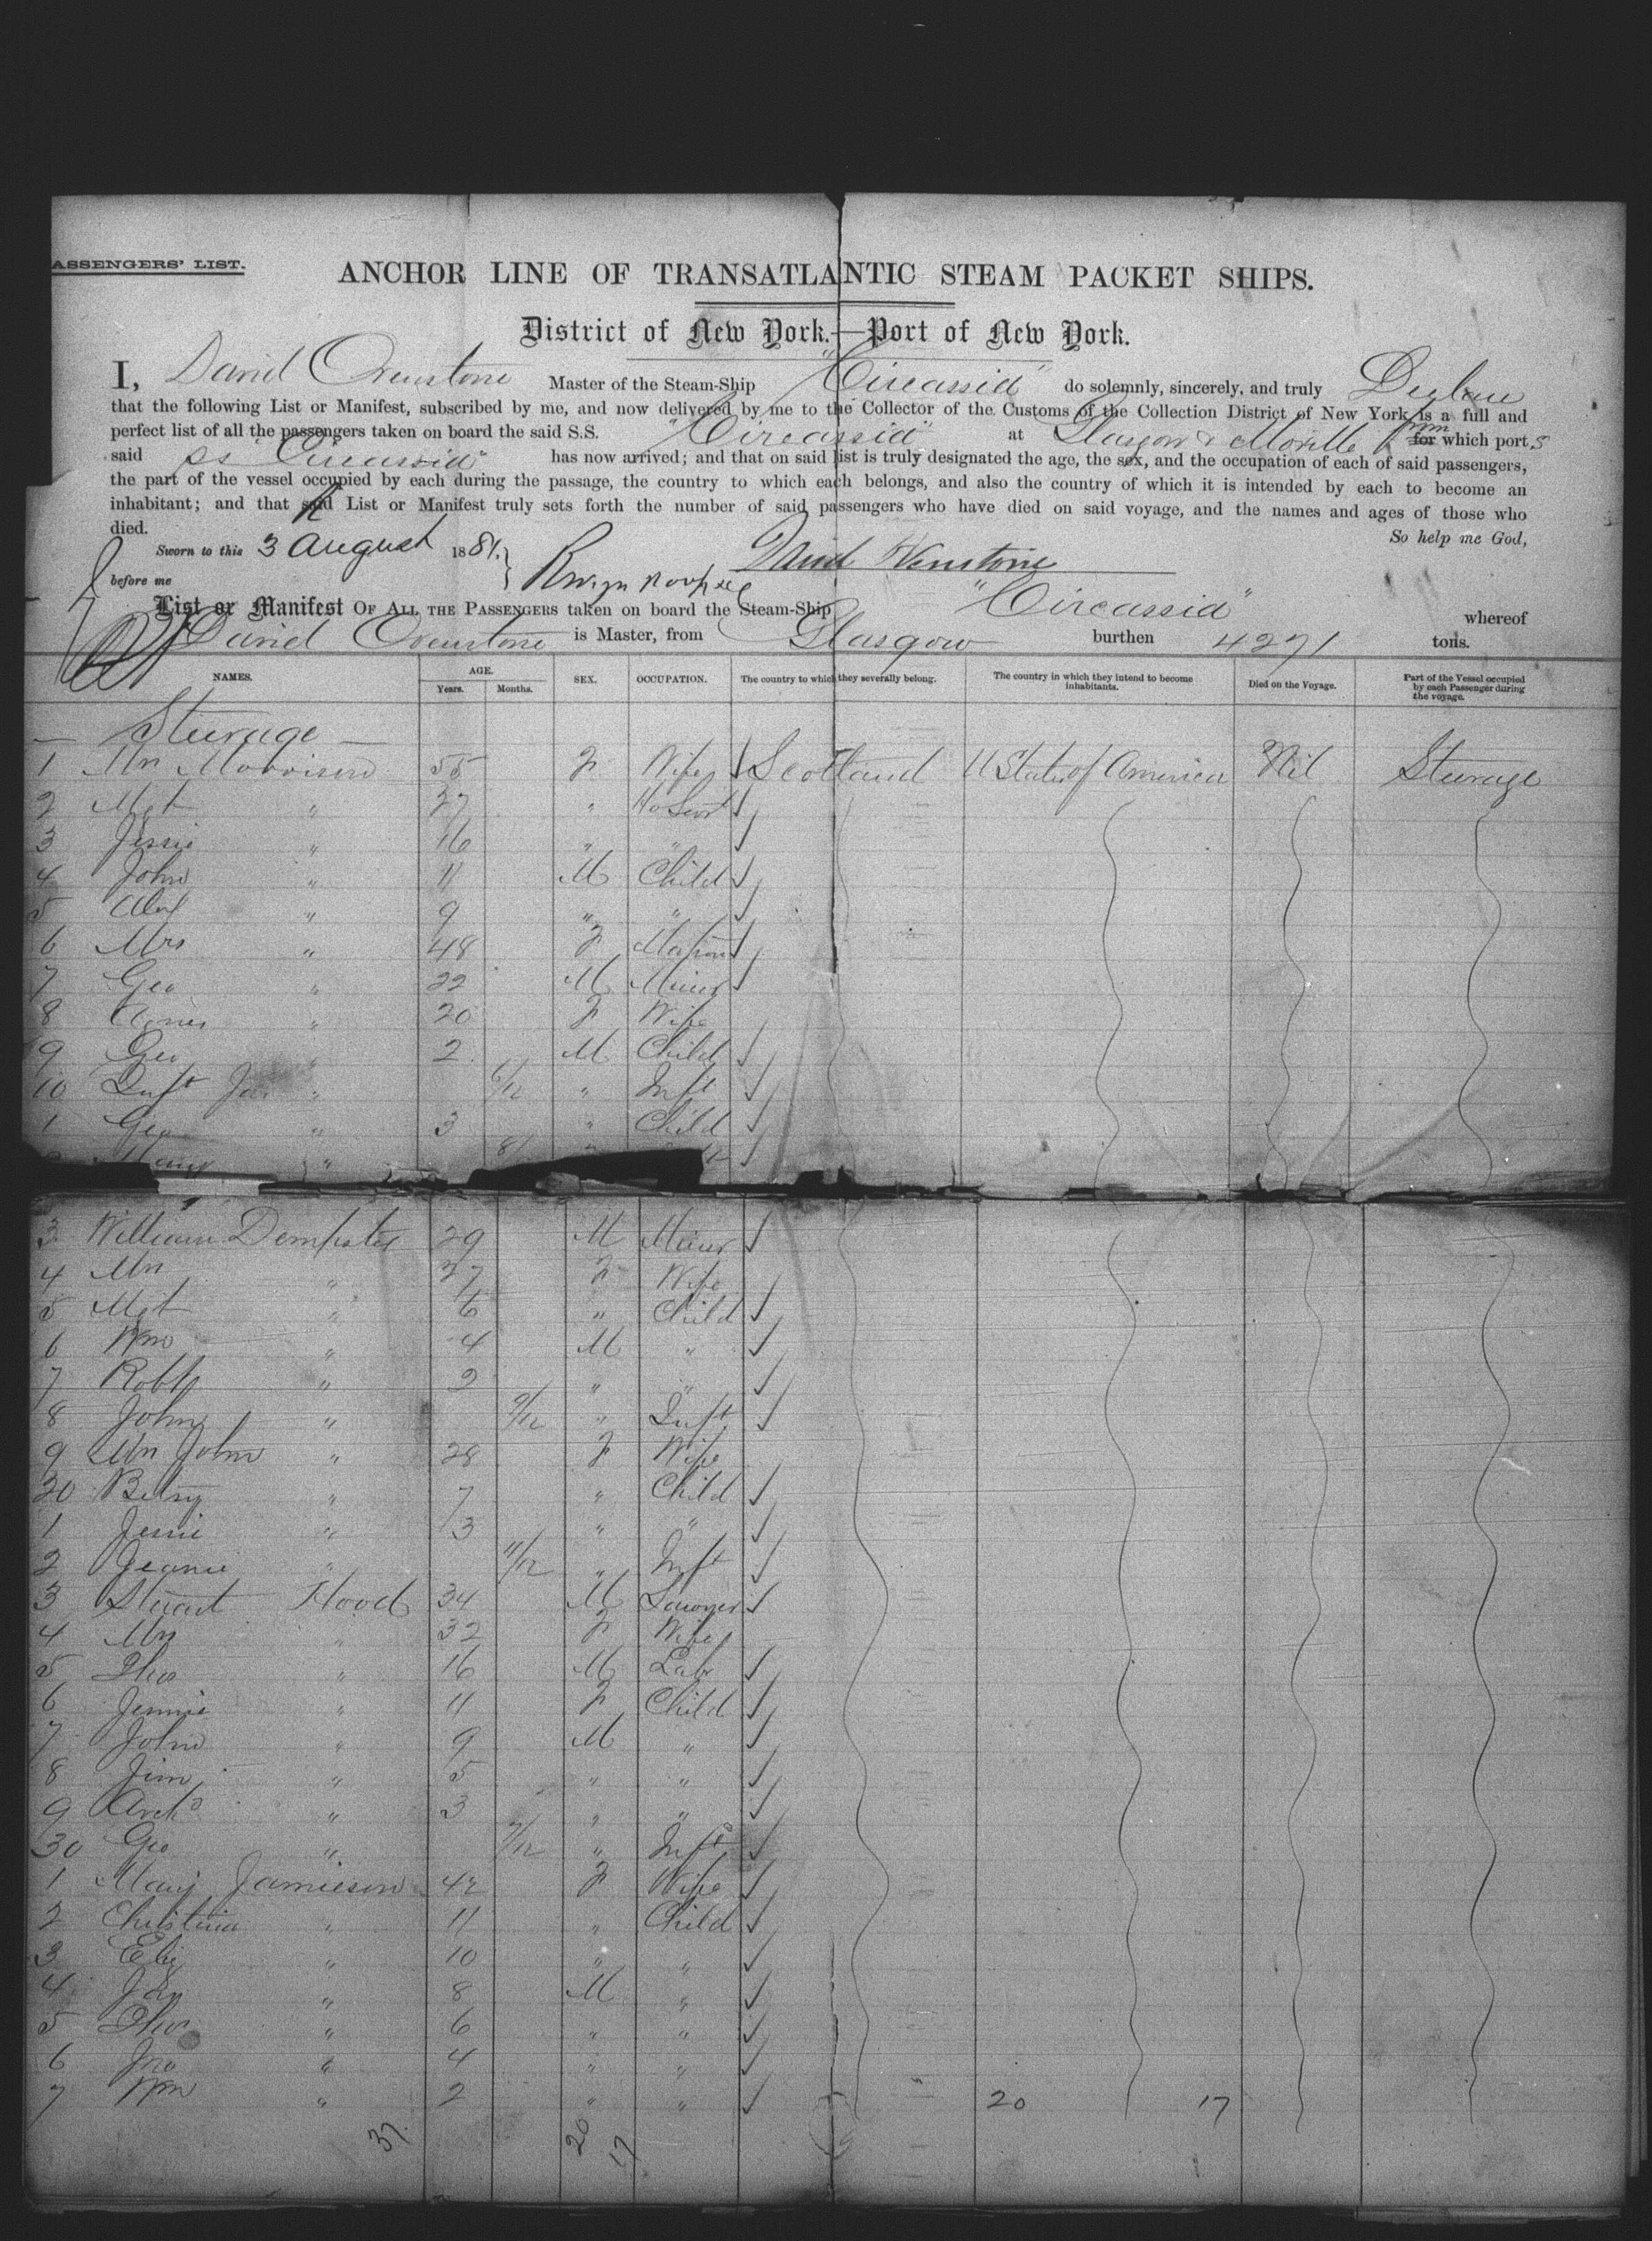 ASSENGERS' LIST.
ANCHOR LINE OF TRANSATLANTIC STEAM PACKET SHIPS.
District of New York.—Port of New York.
I, David Ovenstone Master of the Steam-Ship "Circassia" do solemnly, sincerely, and truly Declare
that the following List or Manifest, subscribed by me, and now delivered by me to the Collector of the Customs of the Collection District of New York is a full and
perfect list of all the passengers taken on board the said S.S. "Circassia" at Glasgow & Moville from for which ports
said SS "Circassia" has now arrived; and that on said list is truly designated the age, the sex, and the occupation of each of said passengers,
the part of the vessel occupied by each during the passage, the country to which each belongs, and also the country of which it is intended by each to become an
inhabitant; and that said List or Manifest truly sets forth the number of said passengers who have died on said voyage, and the names and ages of those who
died. So help me God,
Sworn to this 3 August 1881. David Ovenstone
before me
List or Manifest OF ALL THE PASSENGERS taken on board the Steam-Ship "Circassia" whereof
David Ovenstone is Master, from Glasgow burthen 4271 tons.
NAMES. AGE. Years. Months. SEX. OCCUPATION. The country to which they severally belong. The country in which they intend to become inhabitants. Died on the Voyage. Part of the Vessel occupied by each Passenger during the voyage.
— Steerage —
1 Mrs Morrison 55 F Wife Scotland U States of America Nil Steerage
2 Mgt " 27 " Ho Servt
3 Jessie " 16 " "
4 John " 11 M Child
5 Alex " 9 " "
6 Mrs " 48 F Matron
7 Geo " 22 M Miner
8 Agnes " 20 F Wife
9 Geo " 2 M Child
10 Inft Jas " 6/12 " Inft
1 Geo " 3 " Child
Mary " 8/
3 William Dempster 29 M Miner
4 Mrs " 27 F Wife
5 Mgt " 6 " Child
6 Wm " 4 M "
7 Robt " 2 " "
8 John " 9/12 " Inft
9 Mrs John " 28 F Wife
20 Betsy " 7 " Child
1 Jessie " 3 " "
2 Jeanie " 11/12 " Inft
3 Stewart Hood 34 M
4 Mrs " 32 F Wife
5 Thos " 16 M Labr
6 Jennie " 11 F Child
7 John " 9 M "
8 Jim " 5 " "
9 Archd " 3 " "
30 Geo " 7/12 " Inft
1 Mary Jamieson 42 F Wife
2 Christina " 11 " Child
3 Eliz " 10 " "
4 Jas " 8 M "
5 Thos " 6 " "
6 Jno " 4 " "
7 Wm " 2 " "
20 17
37. 20 17